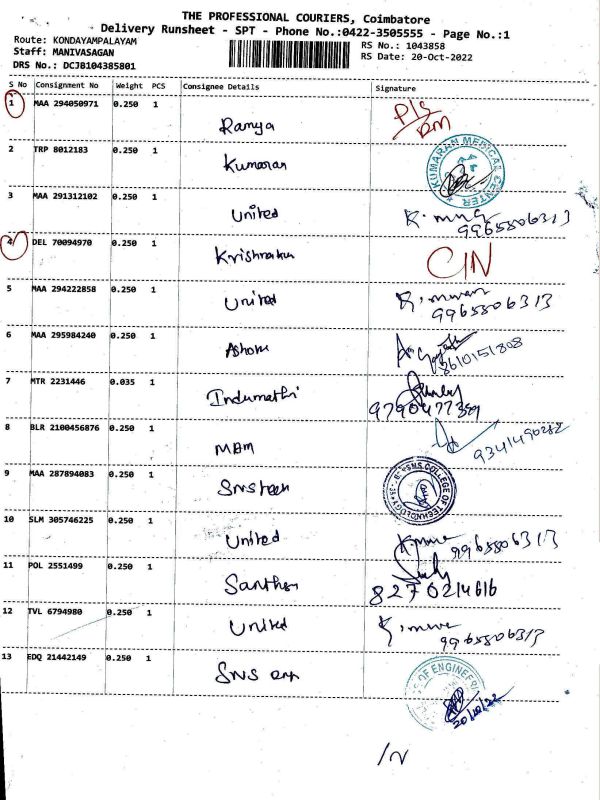 THE PROFESSIONAL COURIERS, Coimbatore
Delivery Runsheet - SPT - Phone No.:0422-3505555 - Page No.:1
Route: KONDAYAMPALAYAM
Staff: MANIVASAGAN
DRS No.: DCJB104385801
RS No.: 1043858
RS Date: 20-Oct-2022
S No Consignment No Weight PCS Consignee Details Signature
1 MAA 294050971 0.250 1 Ramya
2 TRP 8012183 0.250 1 Kumaran KUMARAN MEDICAL CENTER
3 MAA 291312102 0.250 1 United 9965806313
4 DEL 70094970 0.250 1 CIN
5 MAA 294222858 0.250 1 United 9965806313
6 MAA 295984240 0.250 1 Ashok 8610151808
7 MTR 2231446 0.035 1 Indumathi
8 BLR 2100456876 0.250 1
9 MAA 287894083 0.250 1 SNS COLLEGE OF TECHNOLOGY
10 SLM 305746225 0.250 1 United 9965806313
11 POL 2551499 0.250 1 8270214616
12 TVL 6794980 0.250 1 United 9965806313
13 EDQ 21442149 0.250 1 SNS OF ENGINEERING
20/10/22